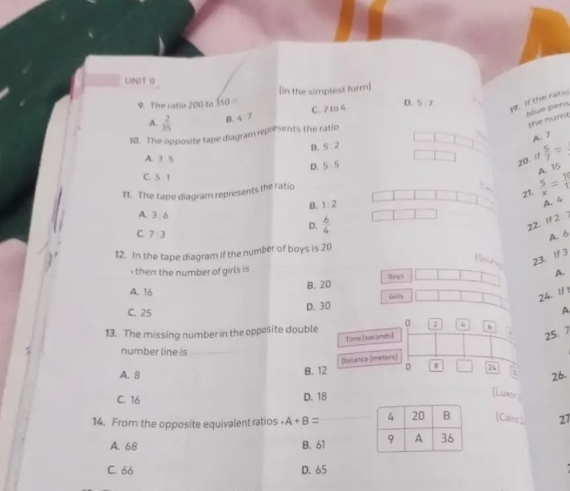 UNIT 9
9. The ratio 200 to 350 = [in the simplest form]
A. 2/35 B. 4:7 C. 7 to 4 D. 5:7
10. The opposite tape diagram represents the ratio
A. 3:5 B. 5:2
C. 5:1 D. 5:5
11. The tape diagram represents the ratio
A. 3:6 B. 1:2
C. 7:3 D. 6/4
12. In the tape diagram if the number of boys is 20
, then the number of girls is
A. 16 B. 20
C. 25 D. 30
Boys
Girls
13. The missing number in the opposite double
number line is
A. 8 B. 12
C. 16 D. 18
0 2 4 6
Time [seconds]
Distance [meters]
0 8 24
14. From the opposite equivalent ratios , A + B =
A. 68 B. 61
C. 66 D. 65
4 20 B
9 A 36
19. If the ratio
blue pens
the numb
A. 7
20. If
A. 15
21.
A. 4
22. If 2:
A. 6
23. If 3
A.
24. If
A
25. 7
26.
27